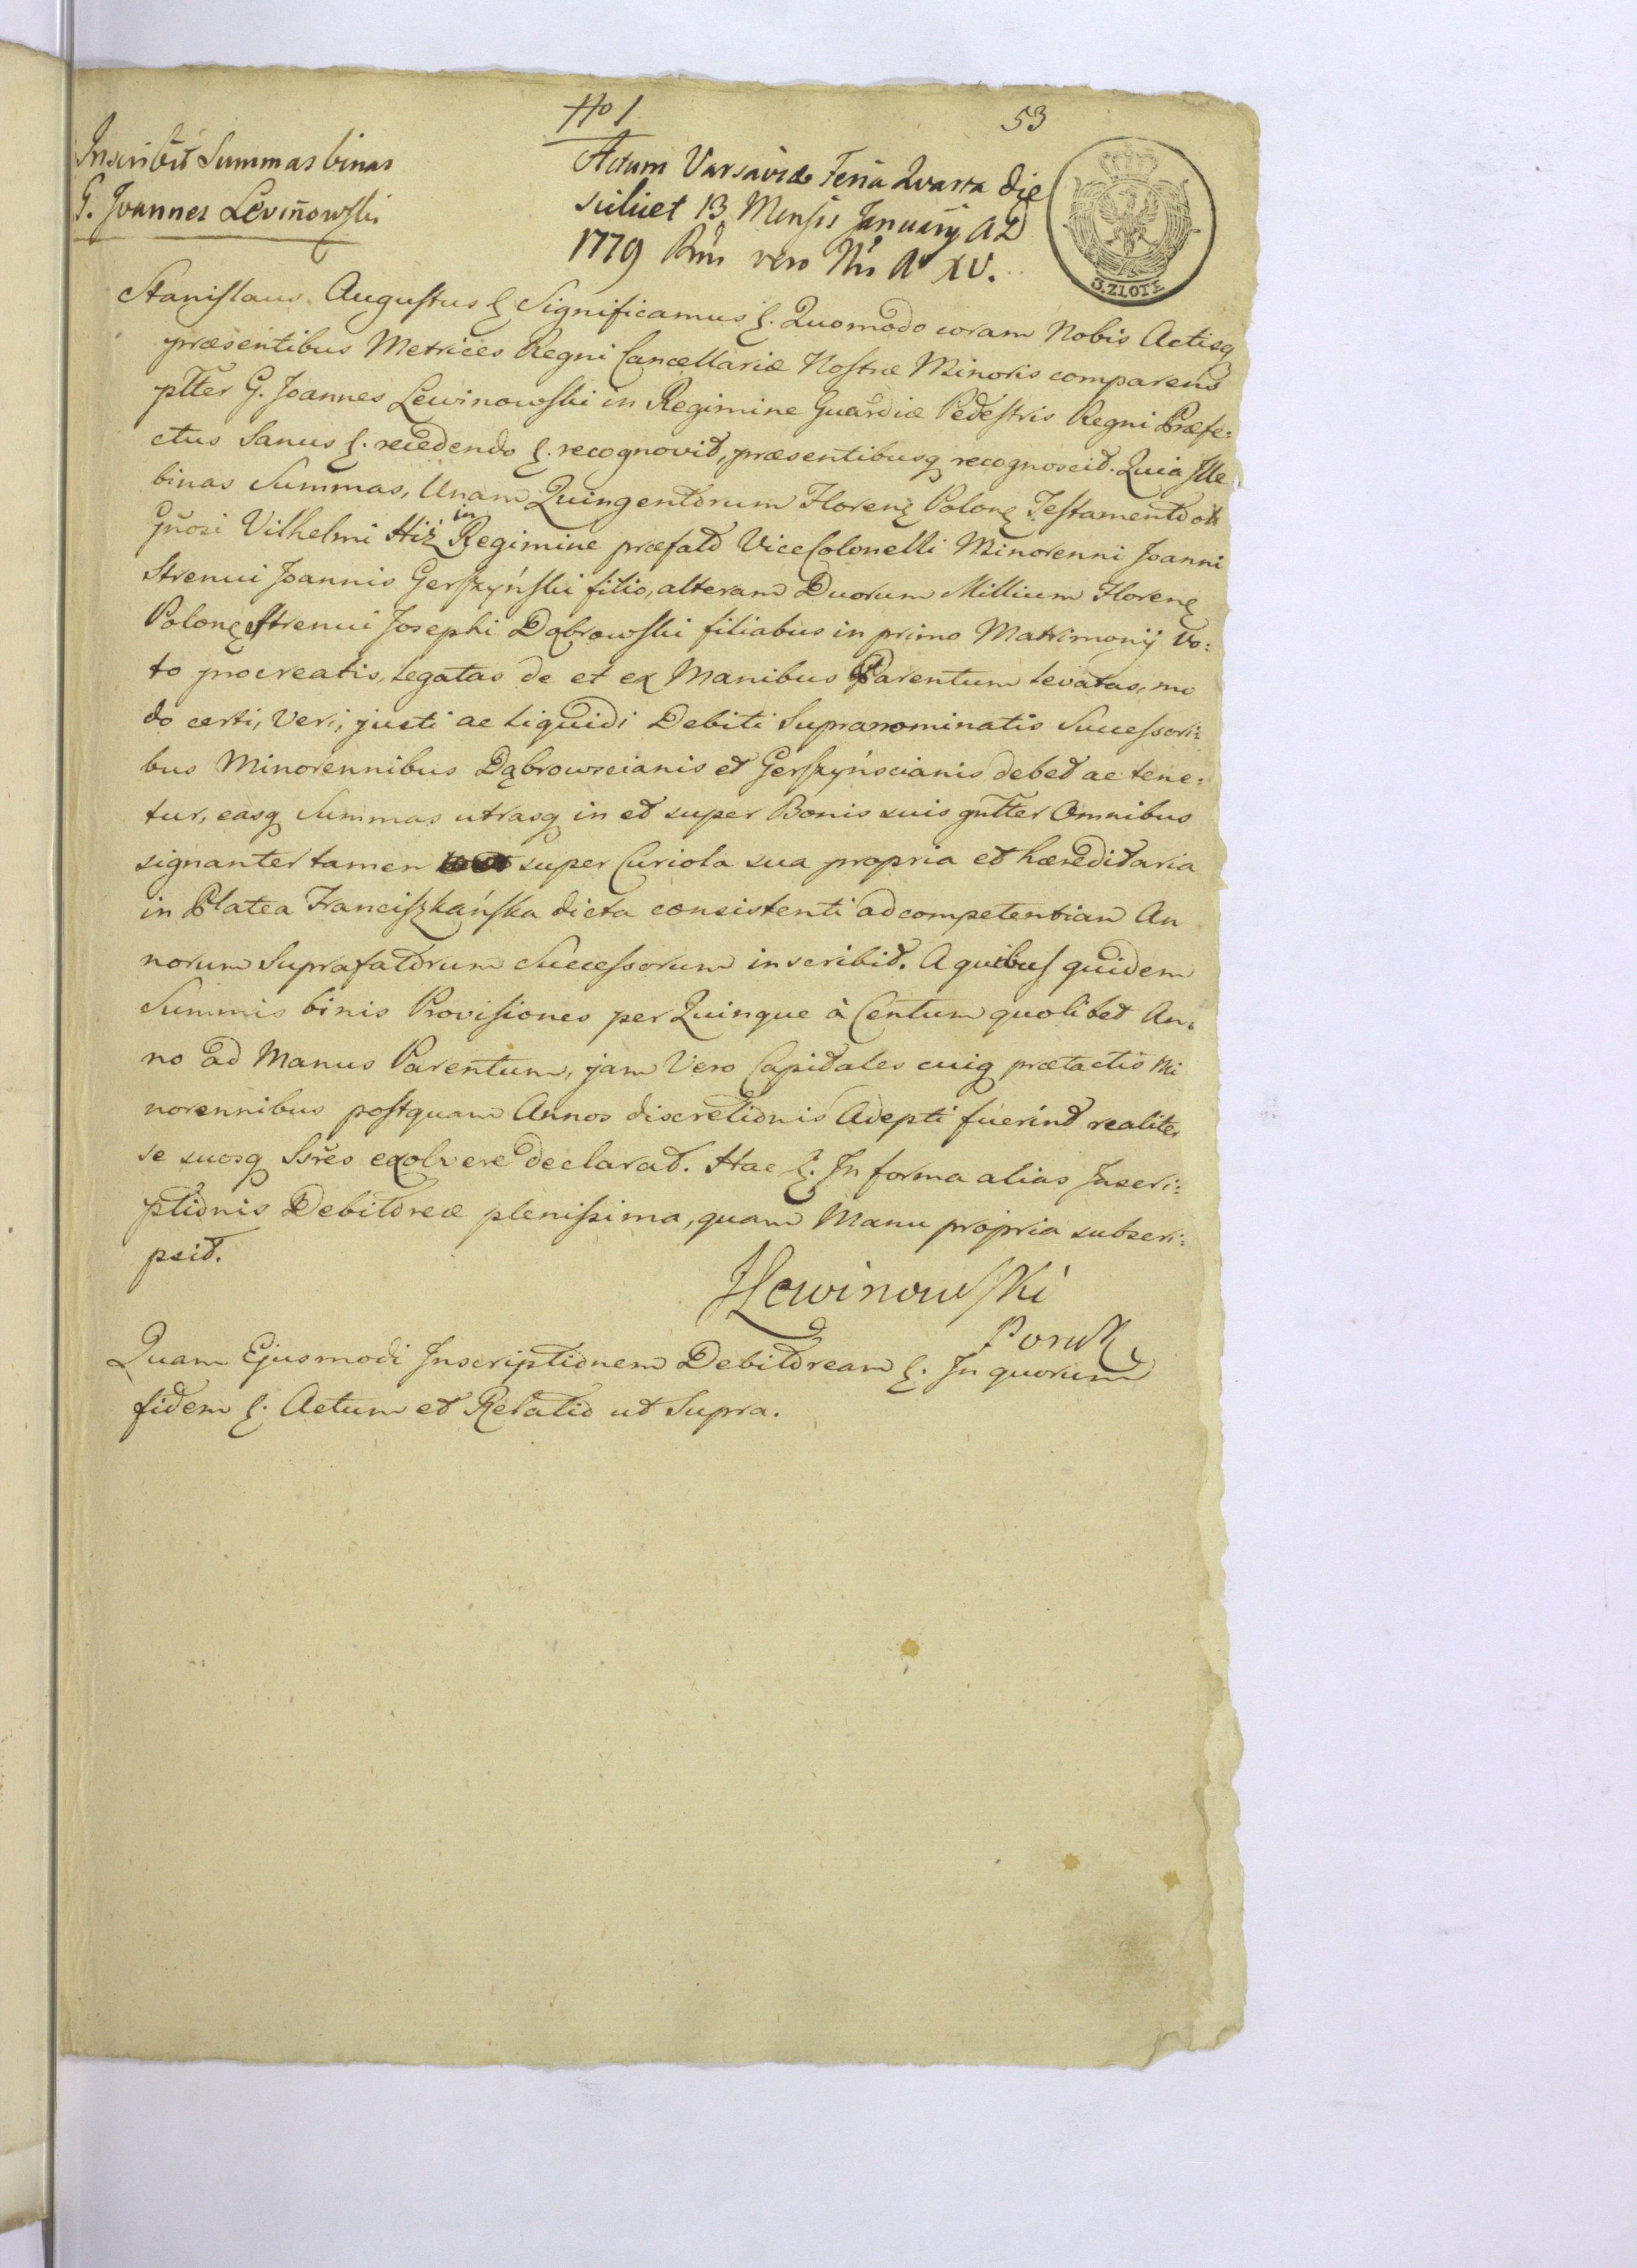 No 1
53
Inscribit Summas binas
G. Joannes Leviñowski
Actum Varsaviæ Feria Quarta die
scilicet 13 Mensis Januarij A D
1779 Rni vero Nri Aº XV.
3. ZŁOTE
Stanislaus Augustus &. Significamus &. Quomodo coram Nobis Actisq
præsentibus Metrices Regni Cancellariæ Nostræ Minoris comparens
pltter G. Joannes Lewinowski in Regimine Guardiæ Pedestris Regni Præfe:
ctus Sanus &. recedendo &. recognovit, præsentibusq recognoscit. Quia Ille
binas Summas, Unam Quingentorum Floren Polon Testamento olt
Gñosi Vilhelmi Hiż in Regimine præfato ViceColonelli Minorenni Joanni
Strenui Joannis Gerszyński filio, alteram Duorum Millium Floren
Polon Strenui Josephi Dąbrowski filiabus in primo Matrimonij Vo:
to procreatis, legatas de et ex Manibus Parentum levatas, mo
do certi, Veri, justi ac liquidi Debiti Supranominatis Successori:
bus Minorennibus Dąbrowscianis et Gerszyńscianis debet ac tene:
tur, easq Summas utrasq in et super Bonis suis gntter Omnibus
signanter tamen super Curiola sua propria et hæreditaria
in Platea Franciszkańska dicta consistenti ad competentiam An
norum Suprafatorum Successorum inscribit. A quibus quidem
Summis binis Provisiones per Quinque à Centum quolibet An:
no ad Manus Parentum, jam Vero Capitales cuiq prætactis Mi
norennibus postquam Annos discretionis Adepti fuerint realiter
se suosq Ssrẽs exolvere declarat. Hac &. In forma alias Inscri:
ptionis Debitoreæ plenissima, quam Manu propria subscri:
psit.
JLewinowski
Poruk
Quam Ejusmodi Inscriptionem Debitoream &. In quorum
fidem &. Actum et Relatio ut Supra.